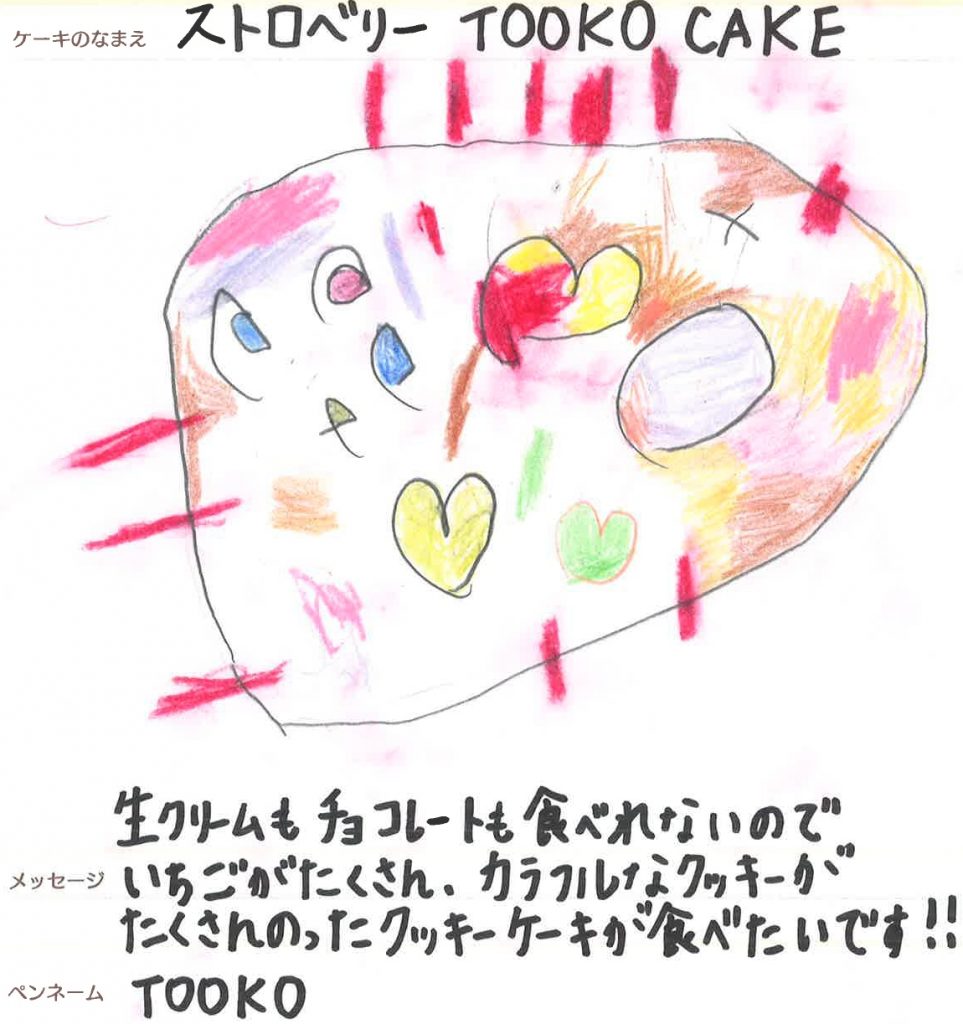 ケーキのなまえ ストロベリー TOOKO CAKE
生クリームもチョコレートも食べれないので
メッセージ いちごがたくさん、カラフルなクッキーが
たくさんのったクッキーケーキが食べたいです!!
ペンネーム TOOKO